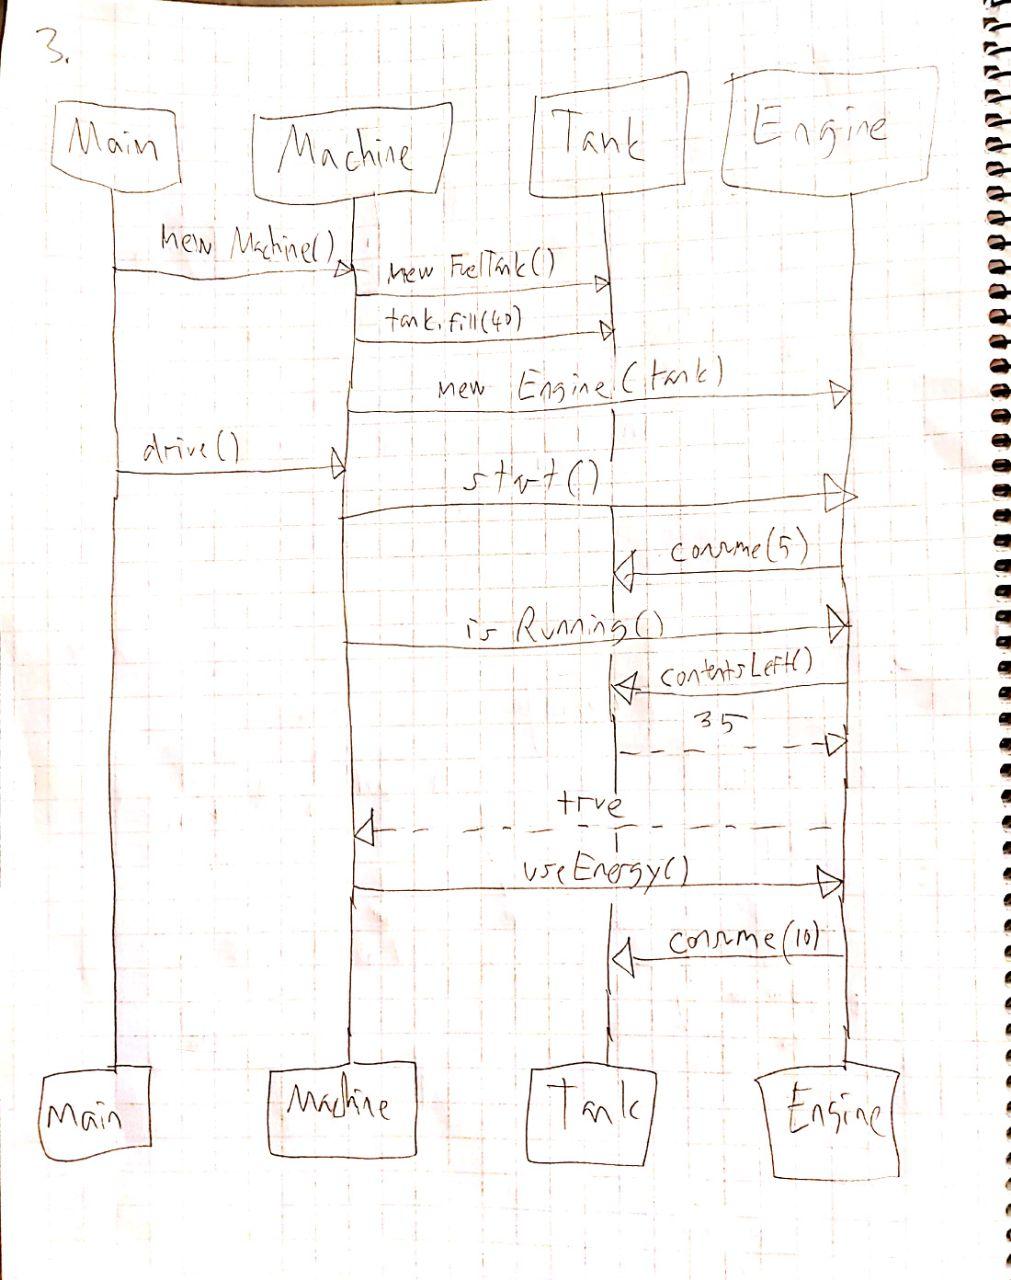 3.
Main
Machine
Tank
Engine
new Machine()
new FuelTank()
tank.fill(40)
new Engine(tank)
drive()
start()
consume(5)
isRunning()
contentsLeft()
35
true
useEnergy()
consume(10)
Main
Machine
Tank
Engine